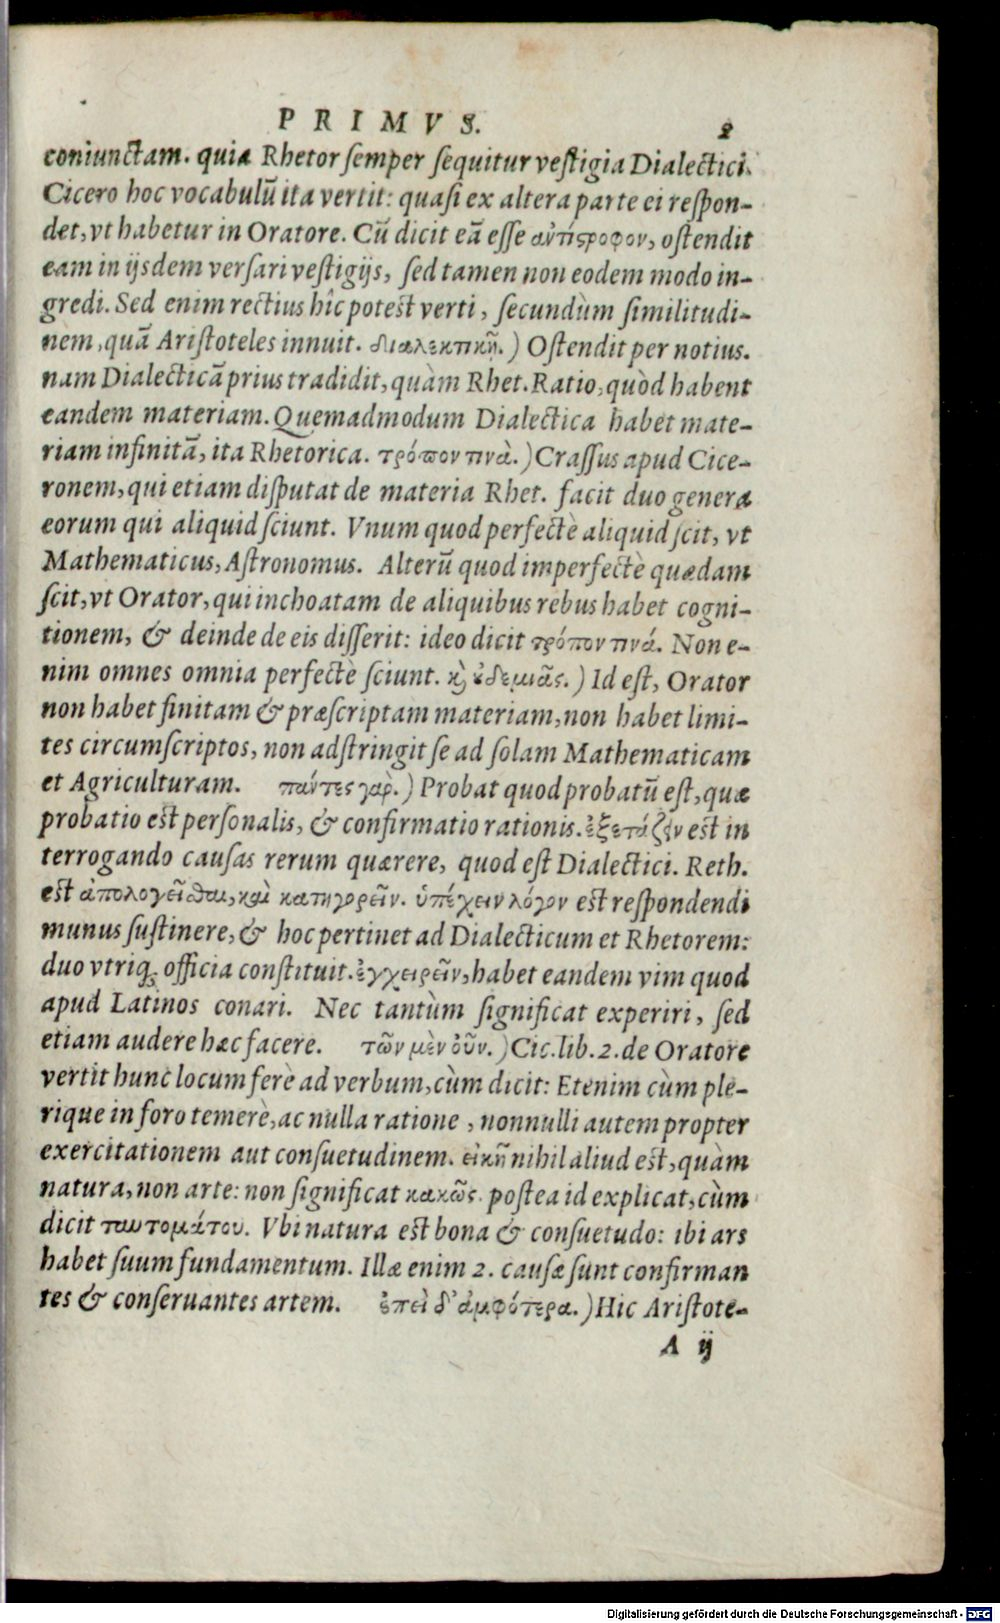 PRIMVS. 2
coniunctam. quia Rhetor semper sequitur vestigia Dialectici.
Cicero hoc vocabulũ ita vertit: quasi ex altera parte ei respon-
det, vt habetur in Oratore. Cũ dicit eã esse ἀντίςροφον, ostendit
eam in ijsdem versari vestigijs, sed tamen non eodem modo in-
gredi. Sed enim rectius hîc potest verti, secundùm similitudi-
nem, quã Aristoteles innuit. διαλεκτικῇ.) Ostendit per notius.
nam Dialecticã prius tradidit, quàm Rhet. Ratio, quòd habent
eandem materiam. Quemadmodum Dialectica habet mate-
riam infinitã, ita Rhetorica. τρόπον τινὰ.) Crassus apud Cice-
ronem, qui etiam disputat de materia Rhet. facit duo genera
eorum qui aliquid sciunt. Vnum quod perfectè aliquid scit, vt
Mathematicus, Astronomus. Alterũ quod imperfectè quædam
scit, vt Orator, qui inchoatam de aliquibus rebus habet cogni-
tionem, & deinde de eis disserit: ideo dicit τρόπον τινά. Non e-
nim omnes omnia perfectè sciunt. κ̀ ȣ̓δεμιᾶς.) Id est, Orator
non habet finitam & præscriptam materiam, non habet limi-
tes circumscriptos, non adstringit se ad solam Mathematicam
et Agriculturam. πάντες γὰρ.) Probat quod probatũ est, quæ
probatio est personalis, & confirmatio rationis. ἐξετάζειν est in
terrogando causas rerum quærere, quod est Dialectici. Reth.
est ἀπολογεῖσθαι, καὶ κατηγορεῖν. ὑπέχειν λόγον est respondendi
munus sustinere, & hoc pertinet ad Dialecticum et Rhetorem:
duo vtriq; officia constituit. ἐγχειρεῖν, habet eandem vim quod
apud Latinos conari. Nec tantùm significat experiri, sed
etiam audere hæc facere. τῶν μὲν οὖν.) Cic. lib. 2. de Oratore
vertit hunc locum ferè ad verbum, cùm dicit: Etenim cùm ple-
rique in foro temerè, ac nulla ratione, nonnulli autem propter
exercitationem aut consuetudinem. εἰκῆ nihil aliud est, quàm
natura, non arte: non significat κακῶς. postea id explicat, cùm
dicit ταυτομάτου. Vbi natura est bona & consuetudo: ibi ars
habet suum fundamentum. Illæ enim 2. causæ sunt confirman
tes & conseruantes artem. ἐπεὶ δ' ἀμφότερα.) Hic Aristote-
A ij
Digitalisierung gefördert durch die Deutsche Forschungsgemeinschaft - DFG